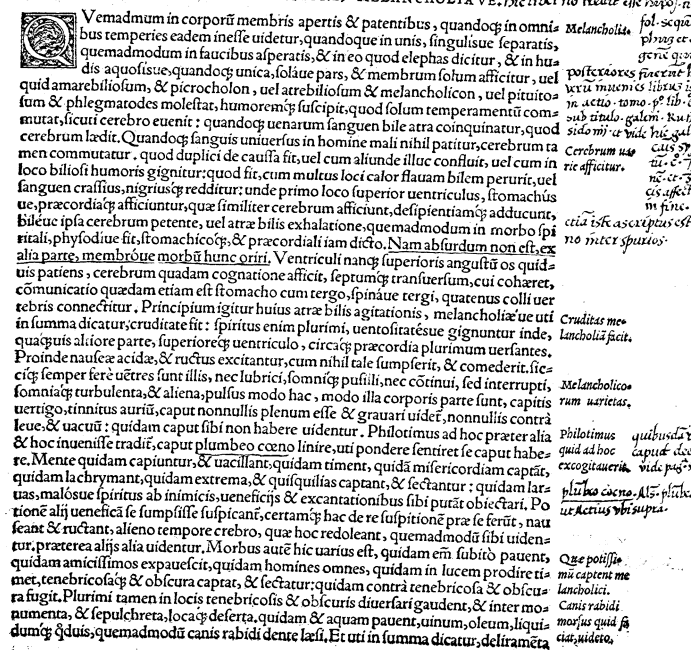 QVemadmum in corporũ membris apertis & patentibus, quandoq; in omni=
bus temperies eadem inesse uidetur, quandoque in unis, singulisue separatis,
quemadmodum in faucibus asperatis, & in eo quod elephas dicitur, & in hu=
dis aquosisue, quandoq; unica, solaue pars, & membrum solum afficitur, uel
quid amarebiliosum, & picrocholon, uel atrebiliosum & melancholicon, uel pituito=
sum & phlegmatodes molestat, humoremq; suscipit, quod solum temperamentũ com=
mutat, sicuti cerebro euenit: quandoq; uenarum sanguen bile atra coinquinatur, quod
cerebrum lædit. Quandoq; sanguis uniuersus in homine mali nihil patitur, cerebrum ta
men commutatur. quod duplici de caussa fit, uel cum aliunde illuc confluit, uel cum in
loco biliosi humoris gignitur: quod fit, cum multus loci calor flauam bilem perurit, uel
sanguen crassius, nigriusq; redditur: unde primo loco superior uentriculus, stomachũs
ue, præcordiaq; afficiuntur, quæ similiter cerebrum afficiunt, desipientiamq; adducunt,
biléue ipsa cerebrum petente, uel atræ bilis exhalatione, quemadmodum in morbo spi
ritali, physodiue fit, stomachicoq;, & præcordiali iam dicto. Nam absurdum non est, ex
alia parte, membróue morbũ hunc oriri. Ventriculi nanq; superioris angustũ os quid=
uis patiens, cerebrum quadam cognatione afficit, septumq; transuersum, cui cohæret,
cõmunicatio quædam etiam est stomacho cum tergo, spináue tergi, quatenus colli uer
tebris connectitur. Principium igitur huius atræ bilis agitationis, melancholiæue uti
in summa dicatur, cruditate fit: spiritus enim plurimi, uentositatésue gignuntur inde,
quaq;uis altiore parte, superioreq; uentriculo, circaq; præcordia plurimum uersantes.
Proinde nauseæ acidæ, & ructus excitantur, cum nihil tale sumpserit, & comederit. sic=
ciq; semper ferè uẽtres sunt illis, nec lubrici, somniq; pusilli, nec cõtinui, sed interrupti,
somniaq; turbulenta, & aliena, pulsus modo hac, modo illa corporis parte sunt, capitis
uertigo, tinnitus auriũ, caput nonnullis plenum esse & grauari uidet~, nonnullis contrà
leue, & uacuũ: quidam caput sibi non habere uidentur. Philotimus ad hoc præter alia
& hoc inuenisse tradit~, caput plumbeo cœno linire, uti pondere sentiret se caput habe=
re. Mente quidam capiuntur, & uacillant, quidam timent, quidã misericordiam captãt,
quidam lachrymant, quidam extrema, & quisquilias captant, & sectantur: quidam lar=
uas, malósue spiritus ab inimicis, ueneficijs & excantationibus sibi putãt obiectari. Po
tionẽ alij ueneficã se sumpsisse suspicant~, certamq; hac de re suspitionẽ præ se ferũt, nau
seant & ructant, alieno tempore crebro, quæ hoc redoleant, quemadmodũ sibi uiden=
tur. præterea alijs alia uidentur. Morbus autẽ hic uarius est, quidam em̃ subitò pauent,
quidam amicissimos expauescit, quidam homines omnes, quidam in lucem prodire ti=
met, tenebricosaq; & obscura captat, & sectatur: quidam contrà tenebricosa & obscu=
ra fugit. Plurimi tamen in locis tenebricosis & obscuris diuersari gaudent, & inter mo=
numenta, & sepulchreta, locaq; deserta. quidam & aquam pauent, uinum, oleum, liqui=
dumq; q̃duis, quemadmodũ canis rabidi dente læsi. Et uti in summa dicatur, deliramẽta
Melancholia.
Cerebrum ua=
rie afficitur.
Cruditas me=
lancholiã facit.
Melancholico=
rum uarietas.
Philotimus
quid ad hoc
excogitauerit.
plũbeo cœno.
ut Aetius ubi supra.
Quæ potissi=
mũ captent me
lancholici.
Canis rabidi
morsus quid fa
ciat, uideto.